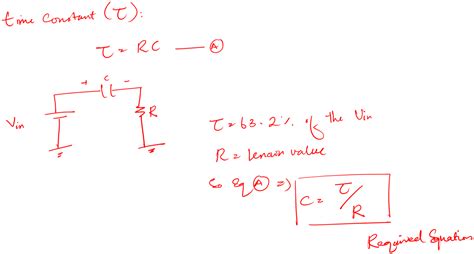 time constant (τ):
τ = RC — Ⓐ
+ C -
Vin
R
τ = 63.2% of the Vin
R = known value
So Eq Ⓐ =)
C = τ/R
Required Equation